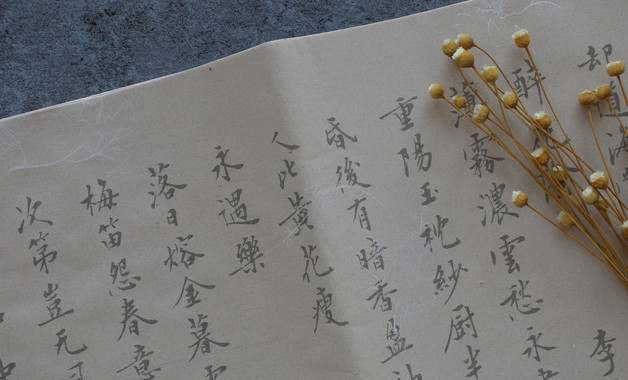 却道海
李
醉
薄霧濃雲愁永
重陽玉枕紗厨半
昏後有暗香盈
人比黃花瘦
永遇樂
落日熔金暮
梅笛怨春意
次第豈无